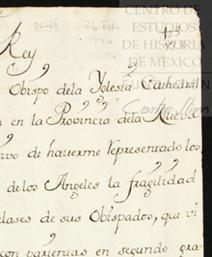 CENTRO DE
ESTUDIOS
DE HISTORIA
DE MEXICO
Rey
Obispo dela Yglesia Cathedral
n en la Provincia dela Puebl
ivo de haverme representado los
de los Angeles la fragilidad
clases de sus Obispados, que vi
con parientas en segundo gra